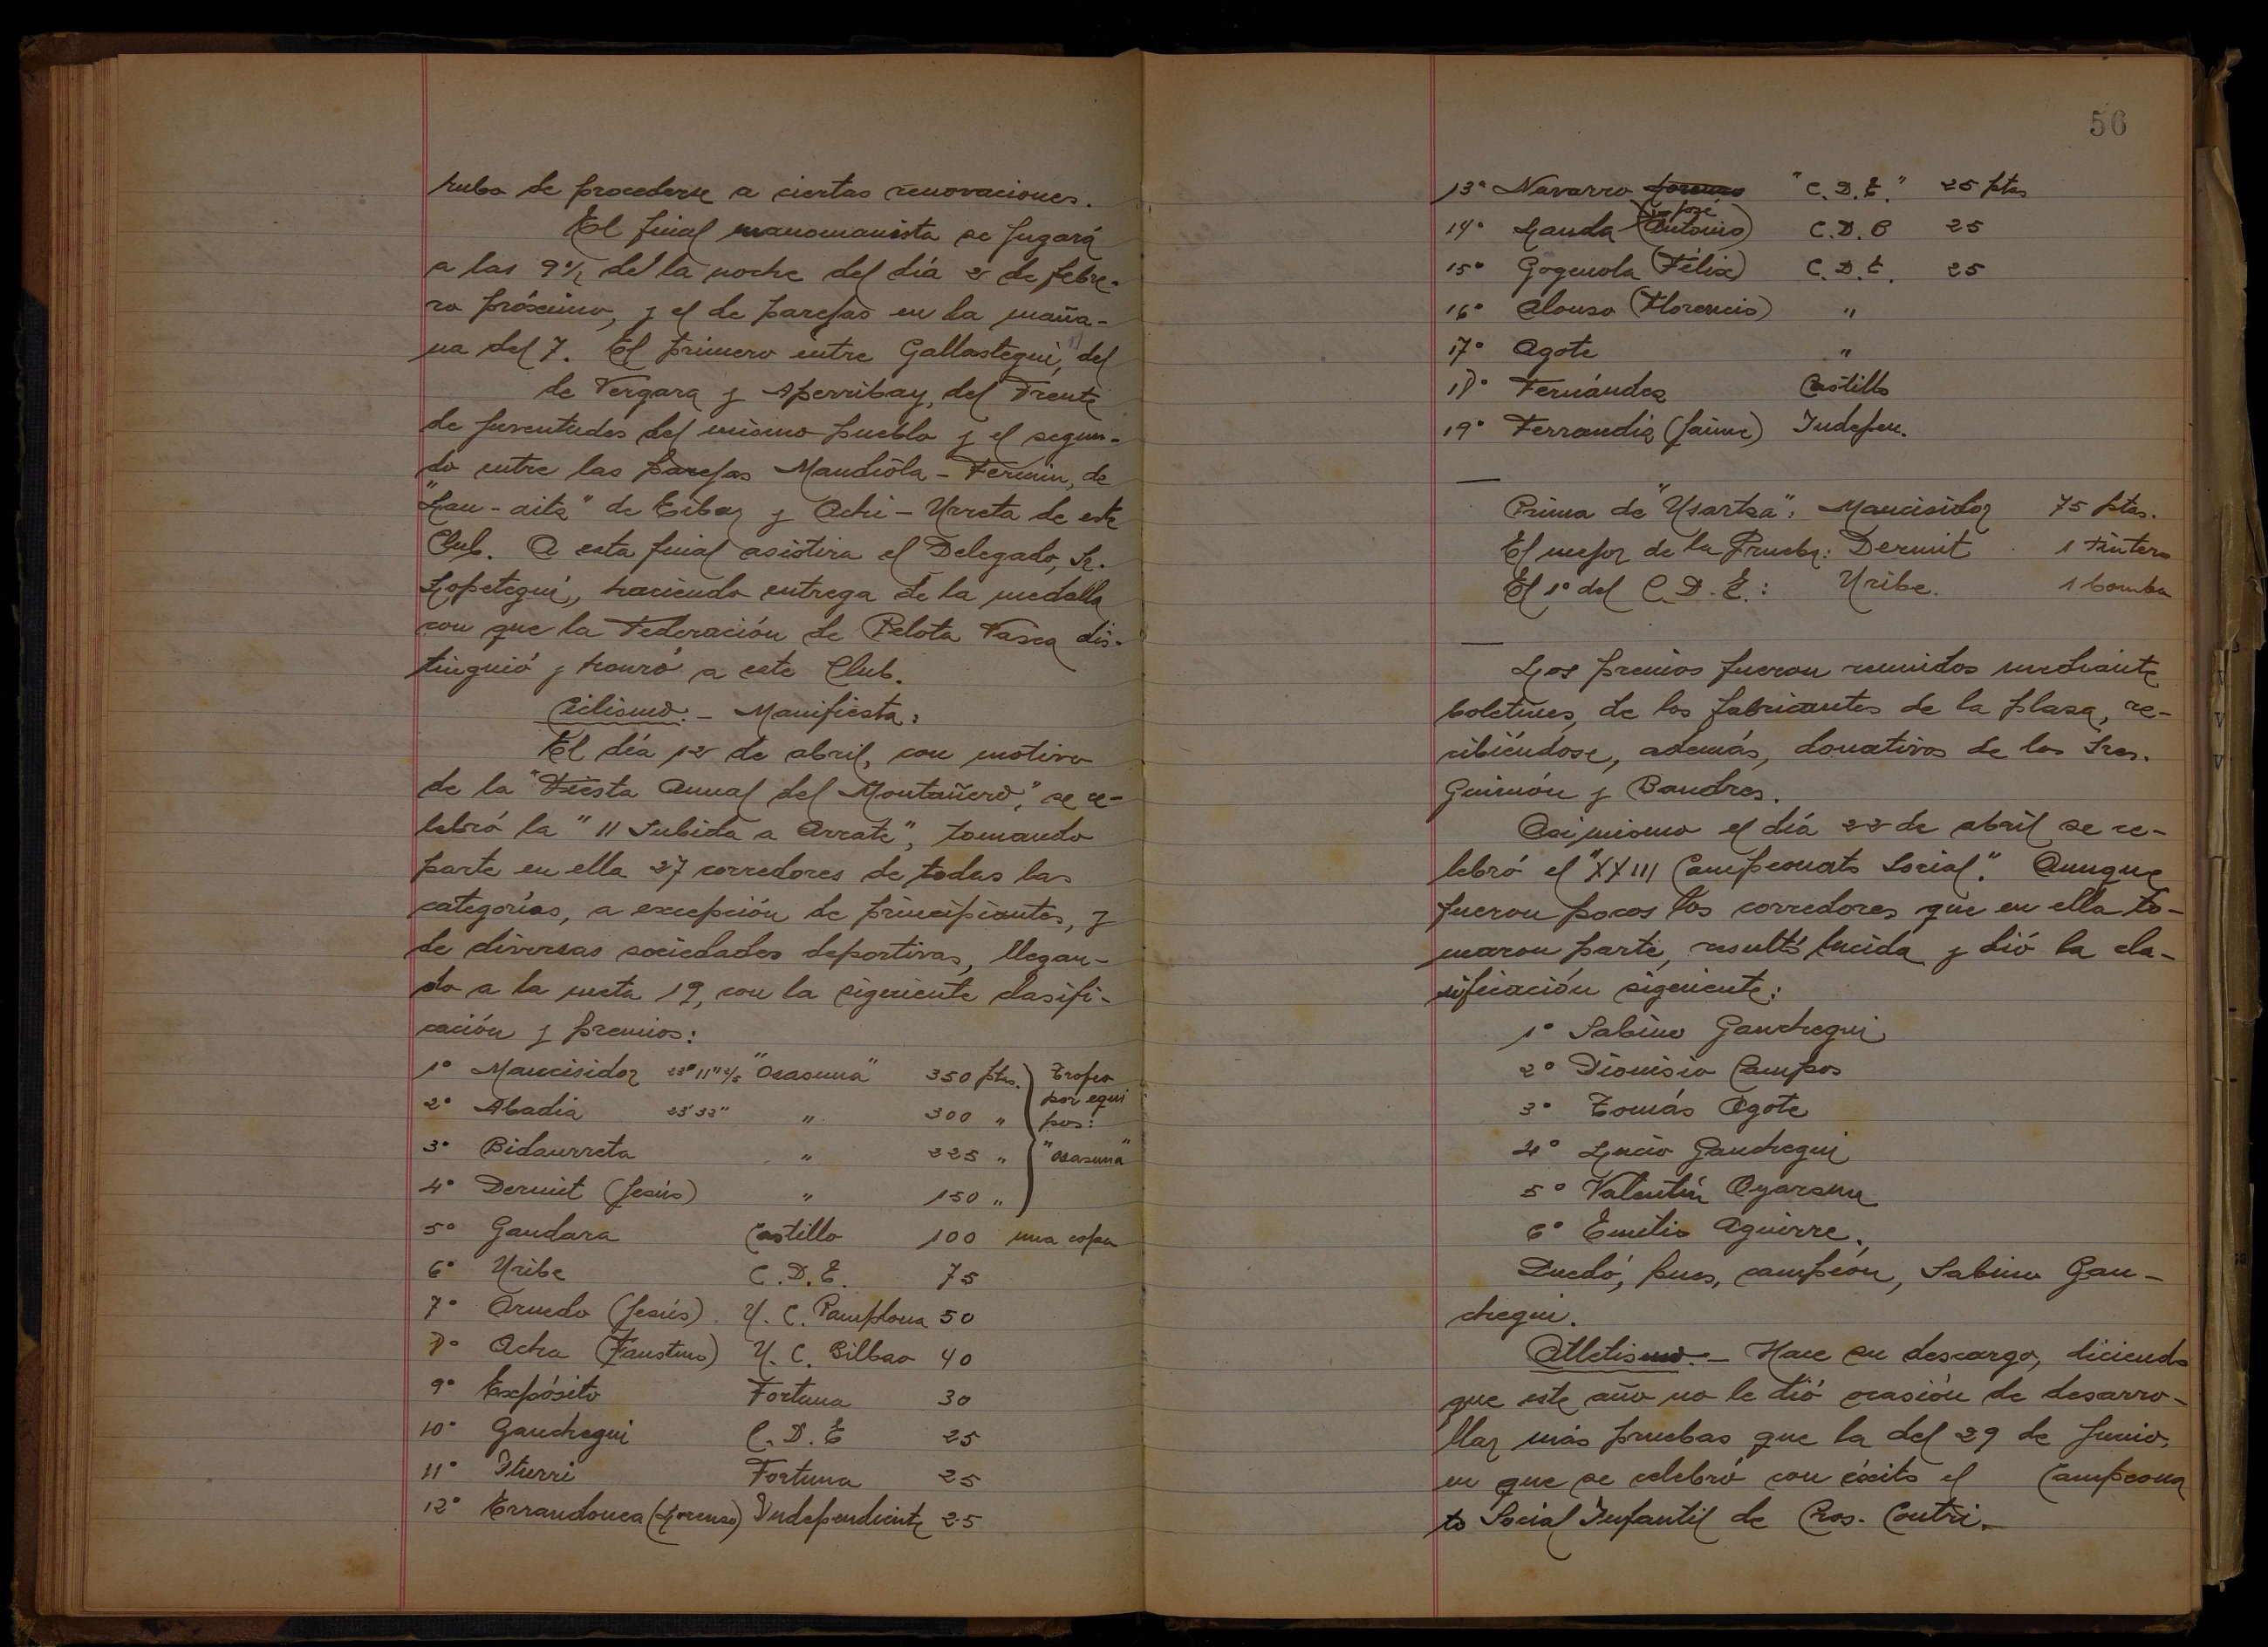 hubo de procederse a ciertas renovaciones.
El final manomanista se jugará
a las 9½ de la noche del día 2 de febre-
ro próximo, y el de parejas en la maña-
na del 7. El primero entre Gallastegui, del
de Vergara y Aperribay, del Frente
de Juventudes del mismo pueblo y el segun-
do entre las parejas Mandiola - Fermin, de
"Lau-aitz" de Eibar y Achi - Urreta de este
Club. A esta final asistira el Delegado, Sr.
Lopetegui, haciendo entrega de la medalla
con que la Federación de Pelota Vasca dis-
tinguió y honró a este Club.
Ciclismo. - Manifiesta:
El día 12 de abril, con motivo
de la "Fiesta Anual del Montañero", se ce-
lebró la "II Subida a Arrate", tomando
parte en ella 27 corredores de todas las
categorías, a excepción de principiantes, y
de diversas sociedades deportivas, llegan-
do a la meta 19, con la sigeriente clasifi-
cación y premios:
1º Mancisidor 23' 11" 2/5 "Osasuna" 350 ptas. Trofeo
por equi
2º Abadia 23' 33" " 300 " pos:
3º Bidaurreta " 225 " "Osasuna"
4º Dermit (Jesús) " 150 "
5º Gandara Castillo 100 una copa
6º Uribe C.D.E. 75
7º Arnedo (Jesús) U.C. Pamplona 50
8º Acha (Faustino) U.C. Bilbao 40
9º Expósito Fortuna 30
10º Ganchegui C.D.E 25
11º Iturri Fortuna 25
12º Errandonea (Lorenzo) Independiente 25
56
13º Navarro Lorenzo "C.D.E." 25 ptas
José
14º Landa (Antonio) C.D.B 25
15º Gogenola (Félix) C.D.E. 25
16º Alonso (Florencio) "
17º Agote "
18º Fernández Castillo
19º Ferrandiz (Jaime) Indepen.
Prima de "Usartza": Mancisidor 75 ptas.
El mejor de la Prueba: Dermit 1 tintero
El 1º del C.D.E.: Uribe. 1 bomba
Los premios fueron reunidos mediante
boletines, de los fabricantes de la plaza, re-
cibiéndose, además, donativos de los Sres.
Guimón y Bandres.
Asimismo el día 22 de abril se ce-
lebró el "XXIII Campeonato Social". Aunque
fueron pocos los corredores que en ella to-
maron parte, resultó lucida y dió la cla-
sificación sigeriente:
1º Sabino Ganchegui
2º Dionisio Campos
3º Tomás Agote
4º Lucio Ganchegui
5º Valentín Oyarzun
6º Emilio Aguirre.
Quedó, pues, campeón, Sabino Gan-
chegui.
Atletismo. - Hace su descargo, diciendo
que este año no le dió ocasión de desarro-
llar más pruebas que la del 29 de Junio,
en que se celebró con éxito el Campeona
to Social Infantil de Cros. Contri.-